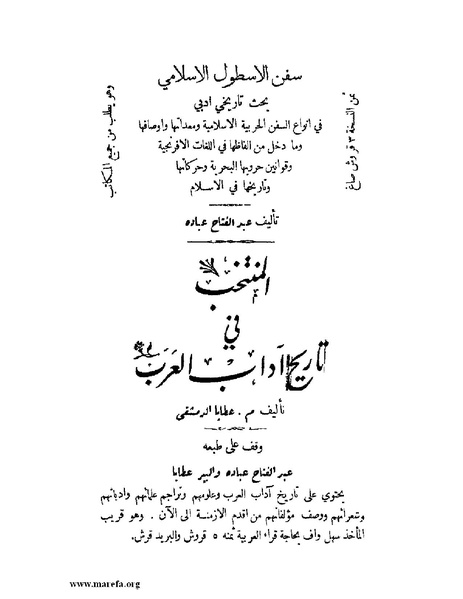 سفن الاسطول الاسلامي
بحث تاريخي ادبي
في انواع السفن الحربية الاسلامية ومعداتها واوصافها
وما دخل من الفاظها في اللغات الافرنجية
وقوانين حروبها البحرية وحركاتها
وتاريخها في الاسلام
ثمن النسخة ٣ قروش صاغ
وهو يطلب من جميع المكاتب
تأليف عبد الفتاح عباده
المنتخب
في
تاريخ آداب العرب
تأليف م . عطايا الدمشقي
وقف على طبعه
عبد الفتاح عباده والبير عطايا
يحتوي على تاريخ آداب العرب وعلومهم وتراجم علمائهم وادبائهم
وشعرائهم ووصف مؤلفاتهم من اقدم الازمنة الى الآن . وهو قريب
المأخذ سهل واف بحاجة قراء العربية ثمنه ٥ قروش والبريد قرش .
www.marefa.org